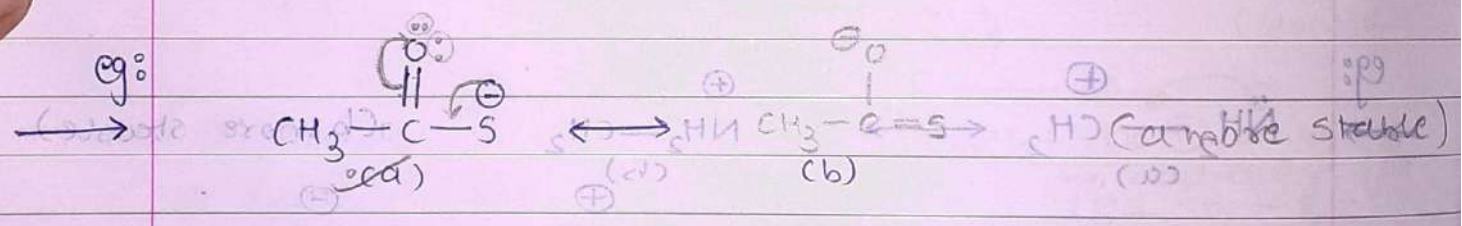 ⊖
O
eg: O ⊖
→ CH₃ — C — S ⟷ CH₃ — C = S (a more stable)
(a) (b)